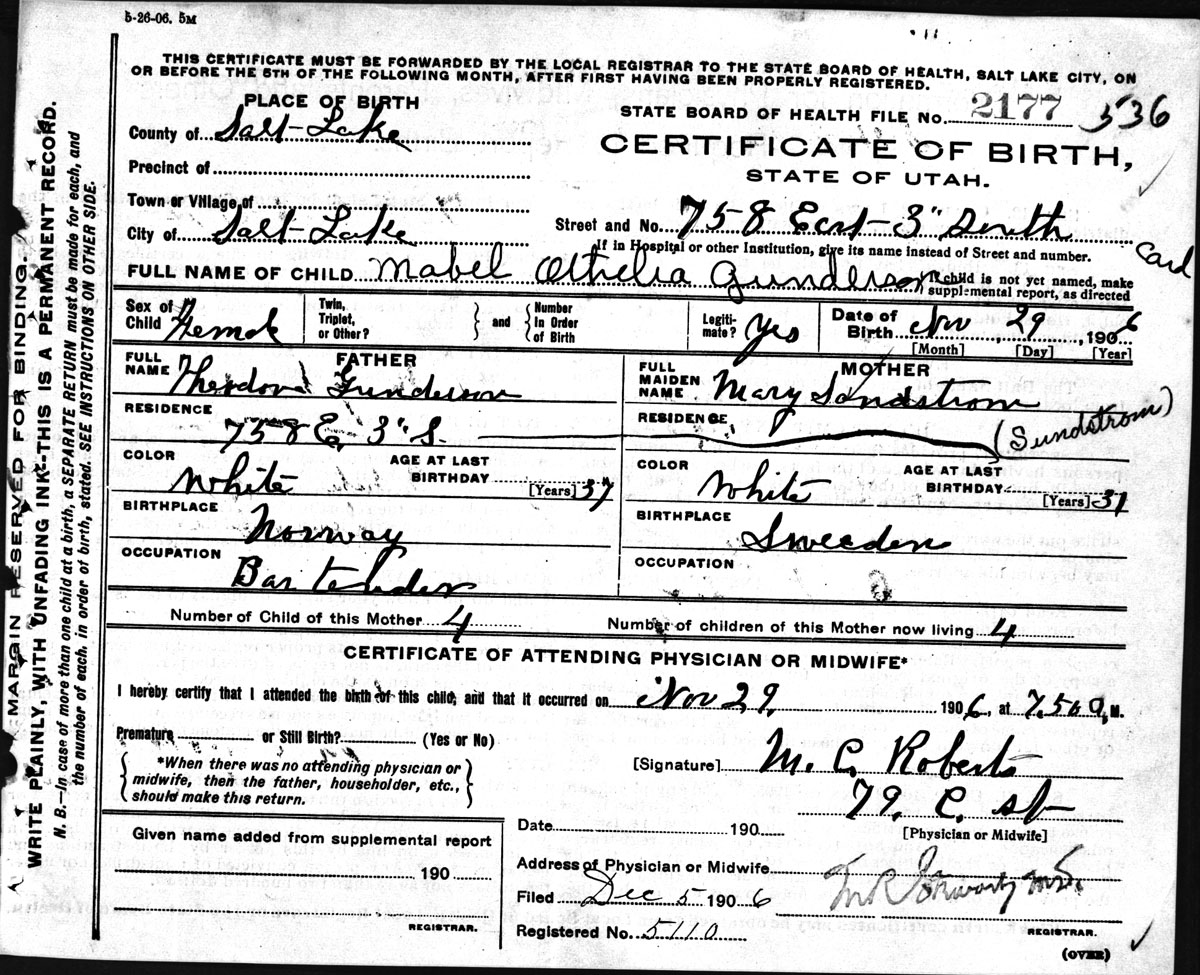 5-26-06. 5M
THIS CERTIFICATE MUST BE FORWARDED BY THE LOCAL REGISTRAR TO THE STATE BOARD OF HEALTH, SALT LAKE CITY, ON
OR BEFORE THE 5TH OF THE FOLLOWING MONTH, AFTER FIRST HAVING BEEN PROPERLY REGISTERED.
PLACE OF BIRTH
STATE BOARD OF HEALTH FILE No. 2177 536
County of Salt-Lake
CERTIFICATE OF BIRTH,
STATE OF UTAH.
Precinct of
Town or Village of
City of Salt-Lake
Street and No. 758 East-3" South
If in Hospital or other Institution, give its name instead of Street and number.
Card
FULL NAME OF CHILD Mabel Othelia Gunderson
If child is not yet named, make
supplemental report, as directed
Sex of Child Female
Twin, Triplet, or Other? and Number In Order of Birth
Legiti-mate? Yes
Date of Birth Nov 29, 1906
[Month] [Day] [Year]
FATHER
FULL NAME Theodore Gunderson
MOTHER
FULL MAIDEN NAME Mary Sandstrom
(Sundstrom)
RESIDENCE 758 E. 3" S.
RESIDENCE
COLOR White
AGE AT LAST BIRTHDAY [Years] 37
COLOR White
AGE AT LAST BIRTHDAY [Years] 37
BIRTHPLACE Norway
BIRTHPLACE Sweeden
OCCUPATION Bartender
OCCUPATION
Number of Child of this Mother 4
Number of children of this Mother now living 4
CERTIFICATE OF ATTENDING PHYSICIAN OR MIDWIFE*
I hereby certify that I attended the birth of this child, and that it occurred on Nov 29, 1906, at 7.50 a, M.
Premature or Still Birth? (Yes or No)
*When there was no attending physician or
midwife, then the father, householder, etc.,
should make this return.
[Signature] M. C. Roberts
79. C. st
[Physician or Midwife]
Date 190
Given name added from supplemental report
190
REGISTRAR.
Address of Physician or Midwife
Filed Dec 5 1906
Registered No. 5110
REGISTRAR.
(OVER)
MARGIN RESERVED FOR BINDING
WRITE PLAINLY, WITH UNFADING INK-THIS IS A PERMANENT RECORD.
N. B.—In case of more than one child at a birth, a SEPARATE RETURN must be made for each, and
the number of each, in order of birth, stated. SEE INSTRUCTIONS ON OTHER SIDE.